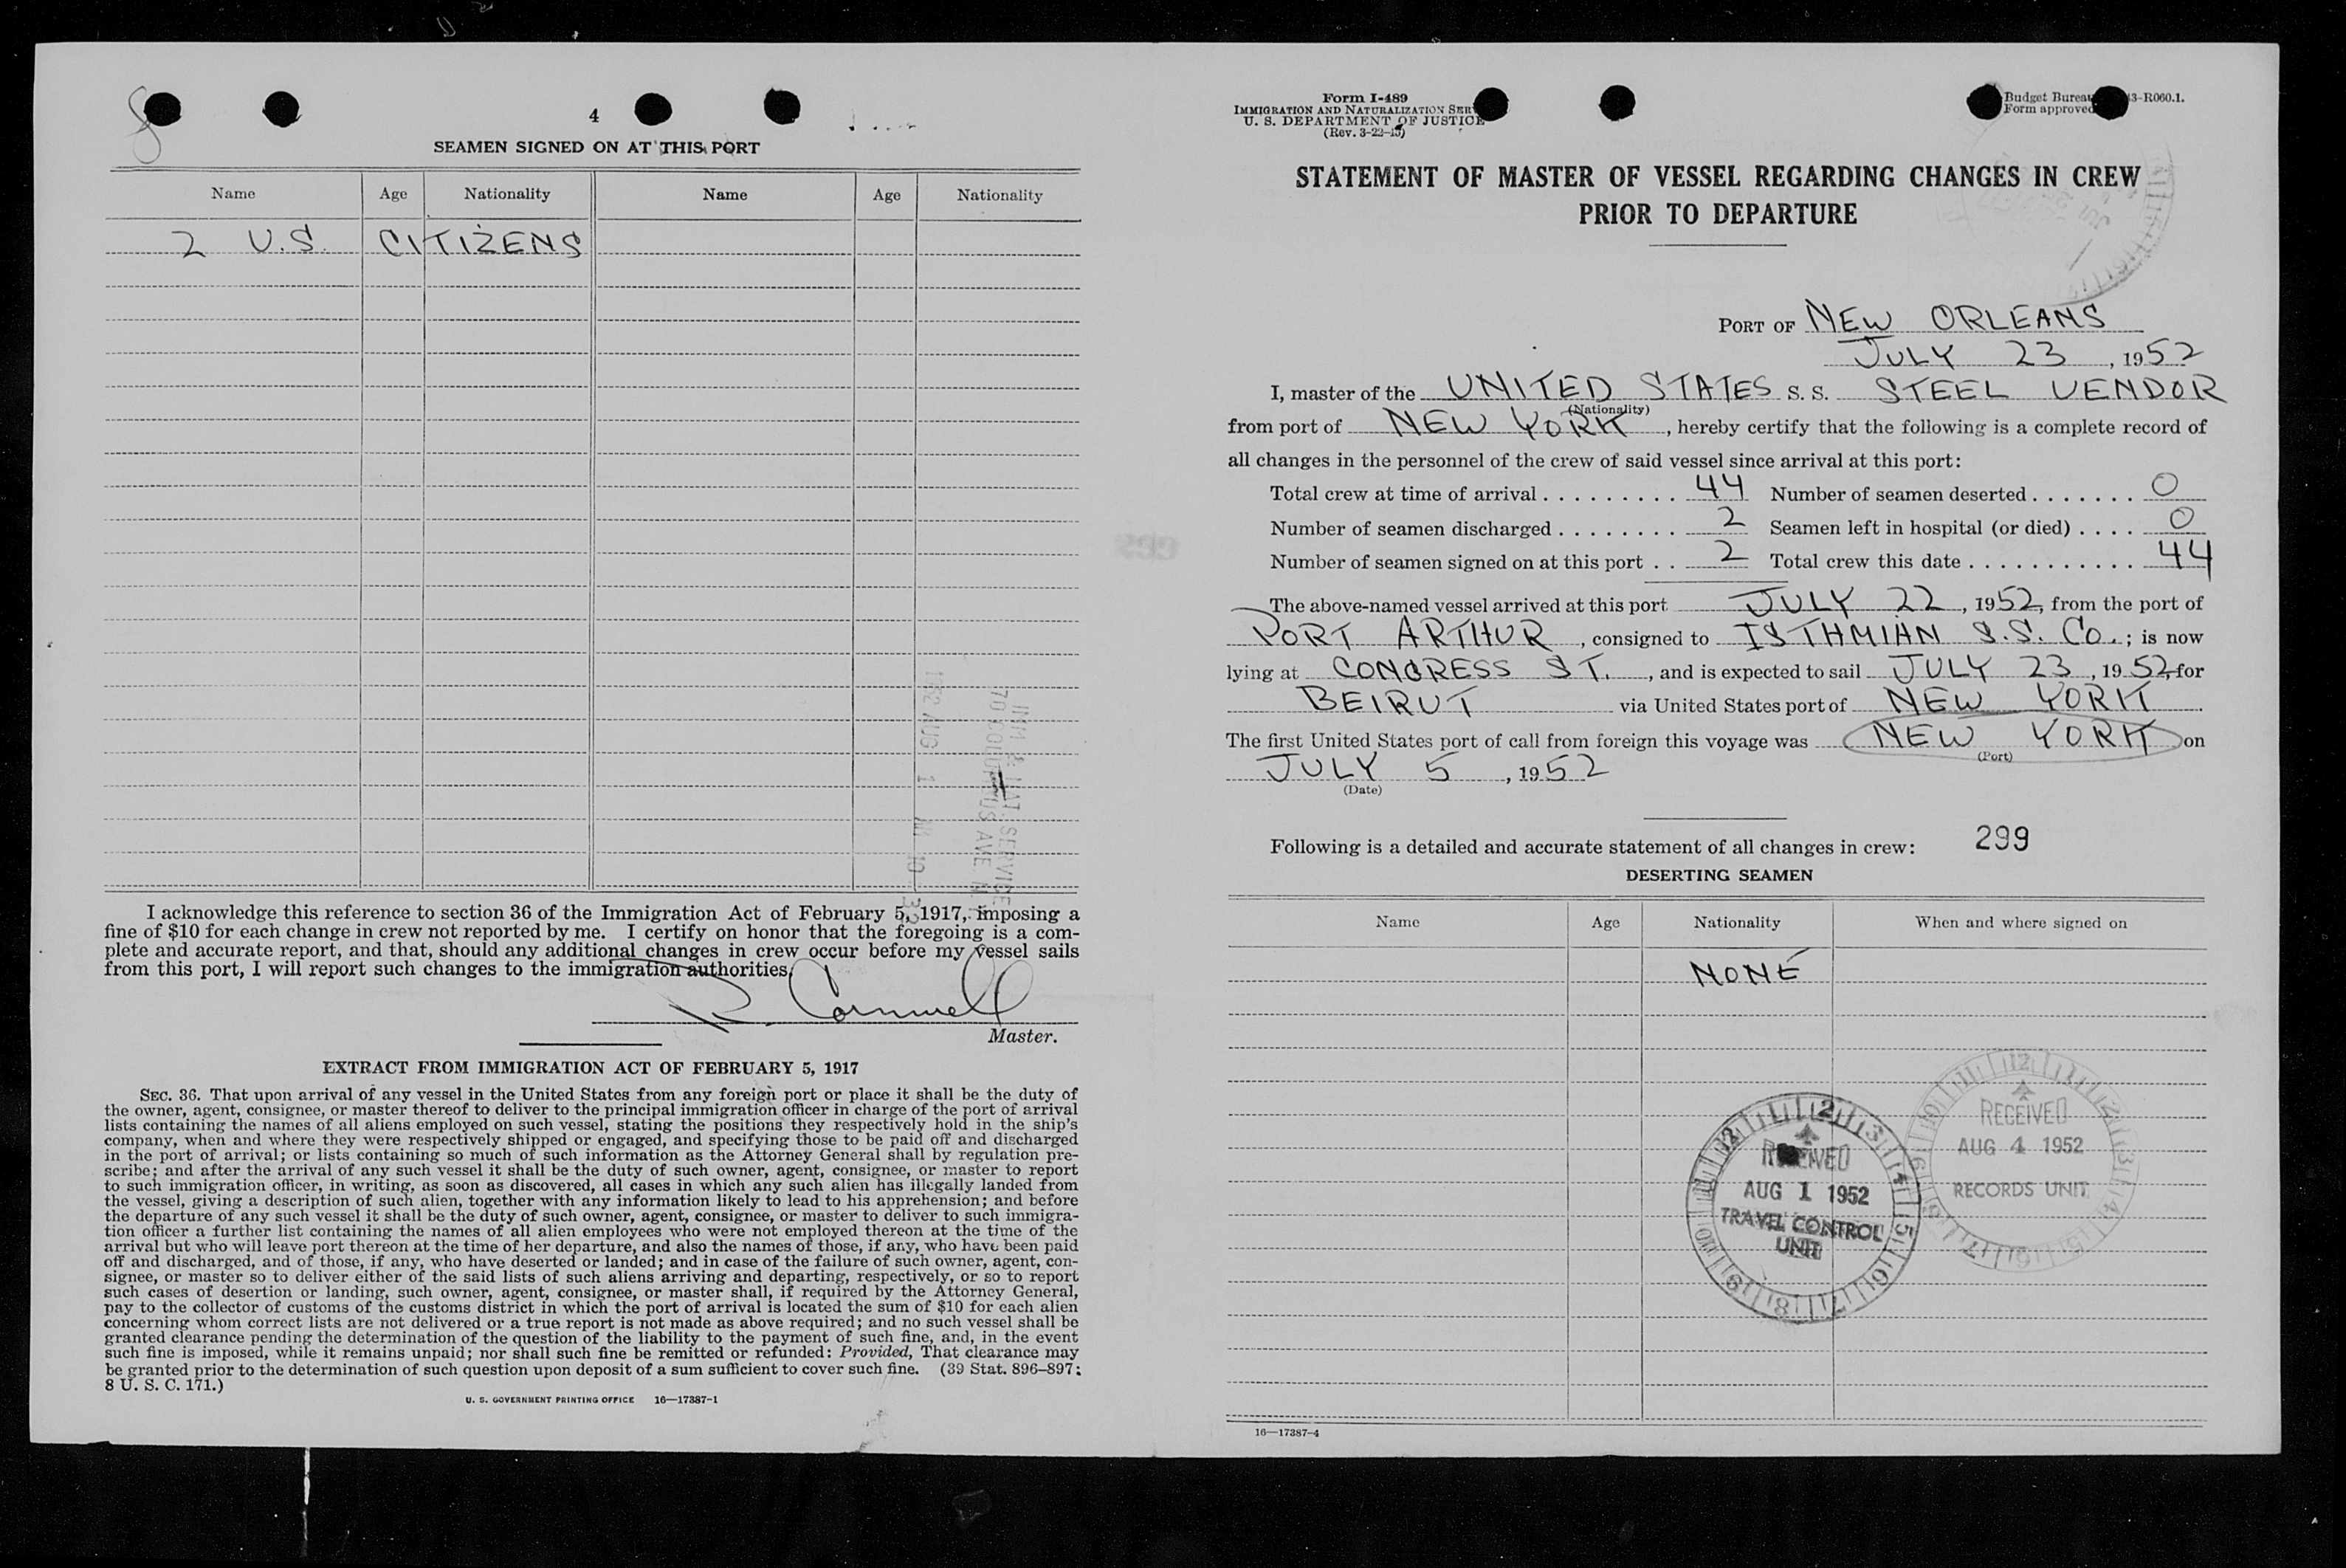 8
4
SEAMEN SIGNED ON AT THIS PORT
Name Age Nationality Name Age Nationality
2 U.S. CITIZENS
I acknowledge this reference to section 36 of the Immigration Act of February 5, 1917, imposing a
fine of $10 for each change in crew not reported by me. I certify on honor that the foregoing is a com-
plete and accurate report, and that, should any additional changes in crew occur before my vessel sails
from this port, I will report such changes to the immigration authorities.
Cornwell
Master.
EXTRACT FROM IMMIGRATION ACT OF FEBRUARY 5, 1917
SEC. 36. That upon arrival of any vessel in the United States from any foreign port or place it shall be the duty of
the owner, agent, consignee, or master thereof to deliver to the principal immigration officer in charge of the port of arrival
lists containing the names of all aliens employed on such vessel, stating the positions they respectively hold in the ship's
company, when and where they were respectively shipped or engaged, and specifying those to be paid off and discharged
in the port of arrival; or lists containing so much of such information as the Attorney General shall by regulation pre-
scribe; and after the arrival of any such vessel it shall be the duty of such owner, agent, consignee, or master to report
to such immigration officer, in writing, as soon as discovered, all cases in which any such alien has illegally landed from
the vessel, giving a description of such alien, together with any information likely to lead to his apprehension; and before
the departure of any such vessel it shall be the duty of such owner, agent, consignee, or master to deliver to such immigra-
tion officer a further list containing the names of all alien employees who were not employed thereon at the time of the
arrival but who will leave port thereon at the time of her departure, and also the names of those, if any, who have been paid
off and discharged, and of those, if any, who have deserted or landed; and in case of the failure of such owner, agent, con-
signee, or master so to deliver either of the said lists of such aliens arriving and departing, respectively, or so to report
such cases of desertion or landing, such owner, agent, consignee, or master shall, if required by the Attorney General,
pay to the collector of customs of the customs district in which the port of arrival is located the sum of $10 for each alien
concerning whom correct lists are not delivered or a true report is not made as above required; and no such vessel shall be
granted clearance pending the determination of the question of the liability to the payment of such fine, and, in the event
such fine is imposed, while it remains unpaid; nor shall such fine be remitted or refunded: Provided, That clearance may
be granted prior to the determination of such question upon deposit of a sum sufficient to cover such fine. (39 Stat. 896–897;
8 U. S. C. 171.)
U. S. GOVERNMENT PRINTING OFFICE 16—17387-1
Form I-489
IMMIGRATION AND NATURALIZATION
U. S. DEPARTMENT OF JUSTICE
Budget Bureau 3-R060.1.
Form approved
STATEMENT OF MASTER OF VESSEL REGARDING CHANGES IN CREW
PRIOR TO DEPARTURE
PORT OF NEW ORLEANS
JULY 23, 1952
I, master of the UNITED STATES S. S. STEEL VENDOR
(Nationality)
from port of NEW YORK, hereby certify that the following is a complete record of
all changes in the personnel of the crew of said vessel since arrival at this port:
Total crew at time of arrival 44 Number of seamen deserted 0
Number of seamen discharged 2 Seamen left in hospital (or died) 0
Number of seamen signed on at this port 2 Total crew this date 44
The above-named vessel arrived at this port JULY 22, 1952, from the port of
PORT ARTHUR, consigned to ISTHMIAN S.S. CO.; is now
lying at CONGRESS ST., and is expected to sail JULY 23, 1952, for
BEIRUT via United States port of NEW YORK.
The first United States port of call from foreign this voyage was NEW YORK on
(Port)
JULY 5, 1952
(Date)
Following is a detailed and accurate statement of all changes in crew: 299
DESERTING SEAMEN
Name Age Nationality When and where signed on
NONE
RECEIVED
AUG 4 1952
RECORDS UNIT
RECEIVED
AUG 1 1952
TRAVEL CONTROL
UNIT
16—17387-4